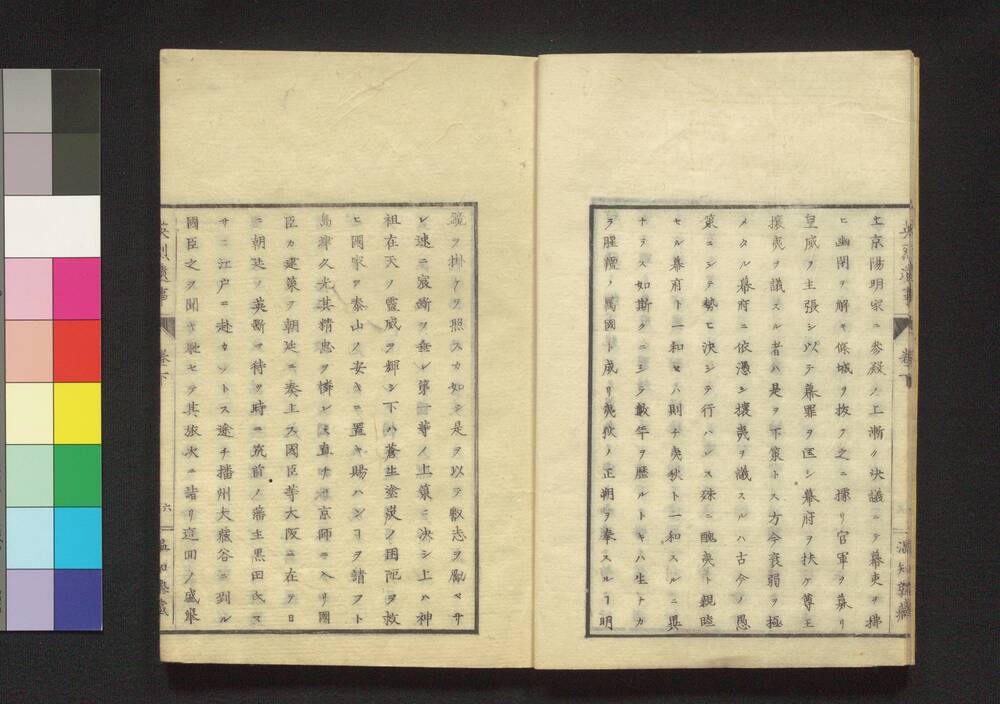 英烈遺事 卷下
温知堂藏
上京陽明家ニ參殿ノ上漸ク決議ニテ幕吏ヲ掃
ヒ幽閉ヲ解キ條城ヲ拔ク之ニ據リ官軍ヲ募リ
皇威ヲ主張シ以テ幕罪ヲ匡シ幕府ヲ扶ケ尊王
攘夷ヲ議スル者ハ是ヲ下策トス方今衰弱ヲ極
メタル幕府ニ依憑シ攘夷ヲ議スルハ古今ノ愚
策ニシテ勢ヒ決シテ行ハレス殊ニ醜夷ト親睦
セル幕府ト一和セハ則チ夷狄ト一和スルニ異
ナラス如斯クニシテ數年ヲ歴ルトキハ生ナカ
ラ腥羶ノ萬國ト成リ夷狄ノ正朔ヲ奉スルヿ明
鏡ヲ掛ケヲ照スカ如シ是ヲ以テ敵志ヲ勵マサ
レ速ニ宸斷ヲ垂レ第一等ノ上策ニ決シ上ハ神
祖在天ノ靈威ヲ輝シ下ハ蒼生塗炭ノ困阨ヲ救
ヒ國家ヲ泰山ノ安キニ置キ賜ハンヿヲ請フト
島津久光其精忠ヲ憐レミ直チニ京師ニ入リ國
臣カ建策ヲ朝廷ニ奏上ス國臣等大阪ニ在テ日
ニ朝廷ノ英斷ヲ待ツ時ニ筑前ノ藩主黒田氏マ
サニ江戸ニ赴カントス途チ播州大藏谷ニ到ル
國臣之ヲ聞キ馳セテ其旅次ニ詣リ這回ノ盛擧
英烈遺事 卷下 六
温知堂藏